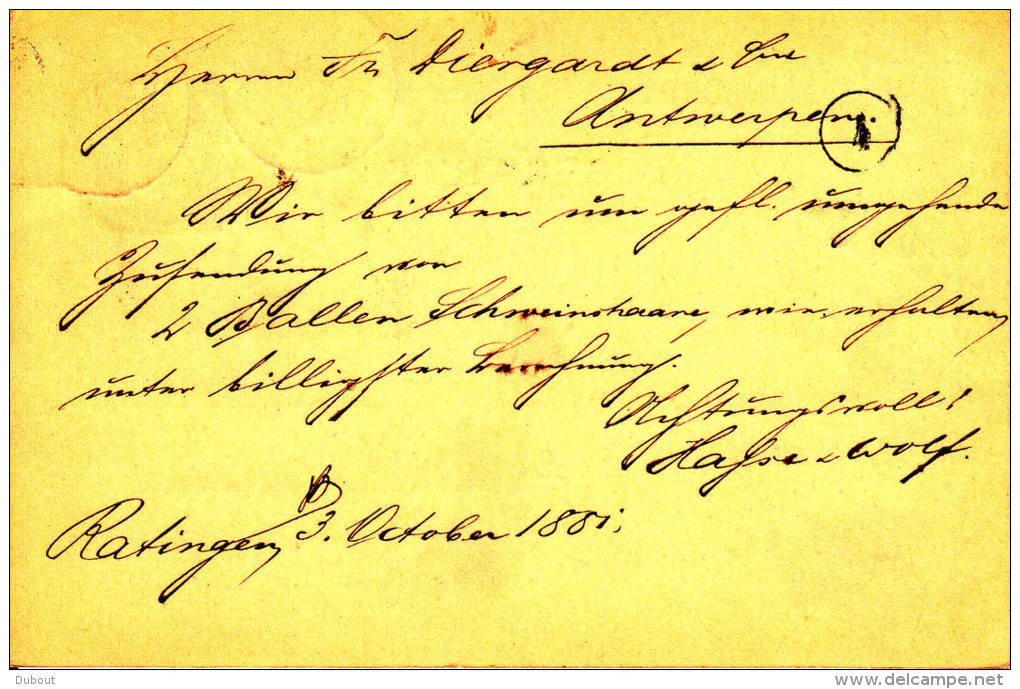 Herren Fr. Diergardt & Cie
Antwerpen.
1
Wir bitten um gefl. umgehende
Zusendung von
2 Ballen Schweinshaare, wie erhalten,
unter billigster Berechnung.
Achtungsvoll!
Hasse & Wolf.
Ratingen, 3. October 1881.
Dubout
www.delcampe.net